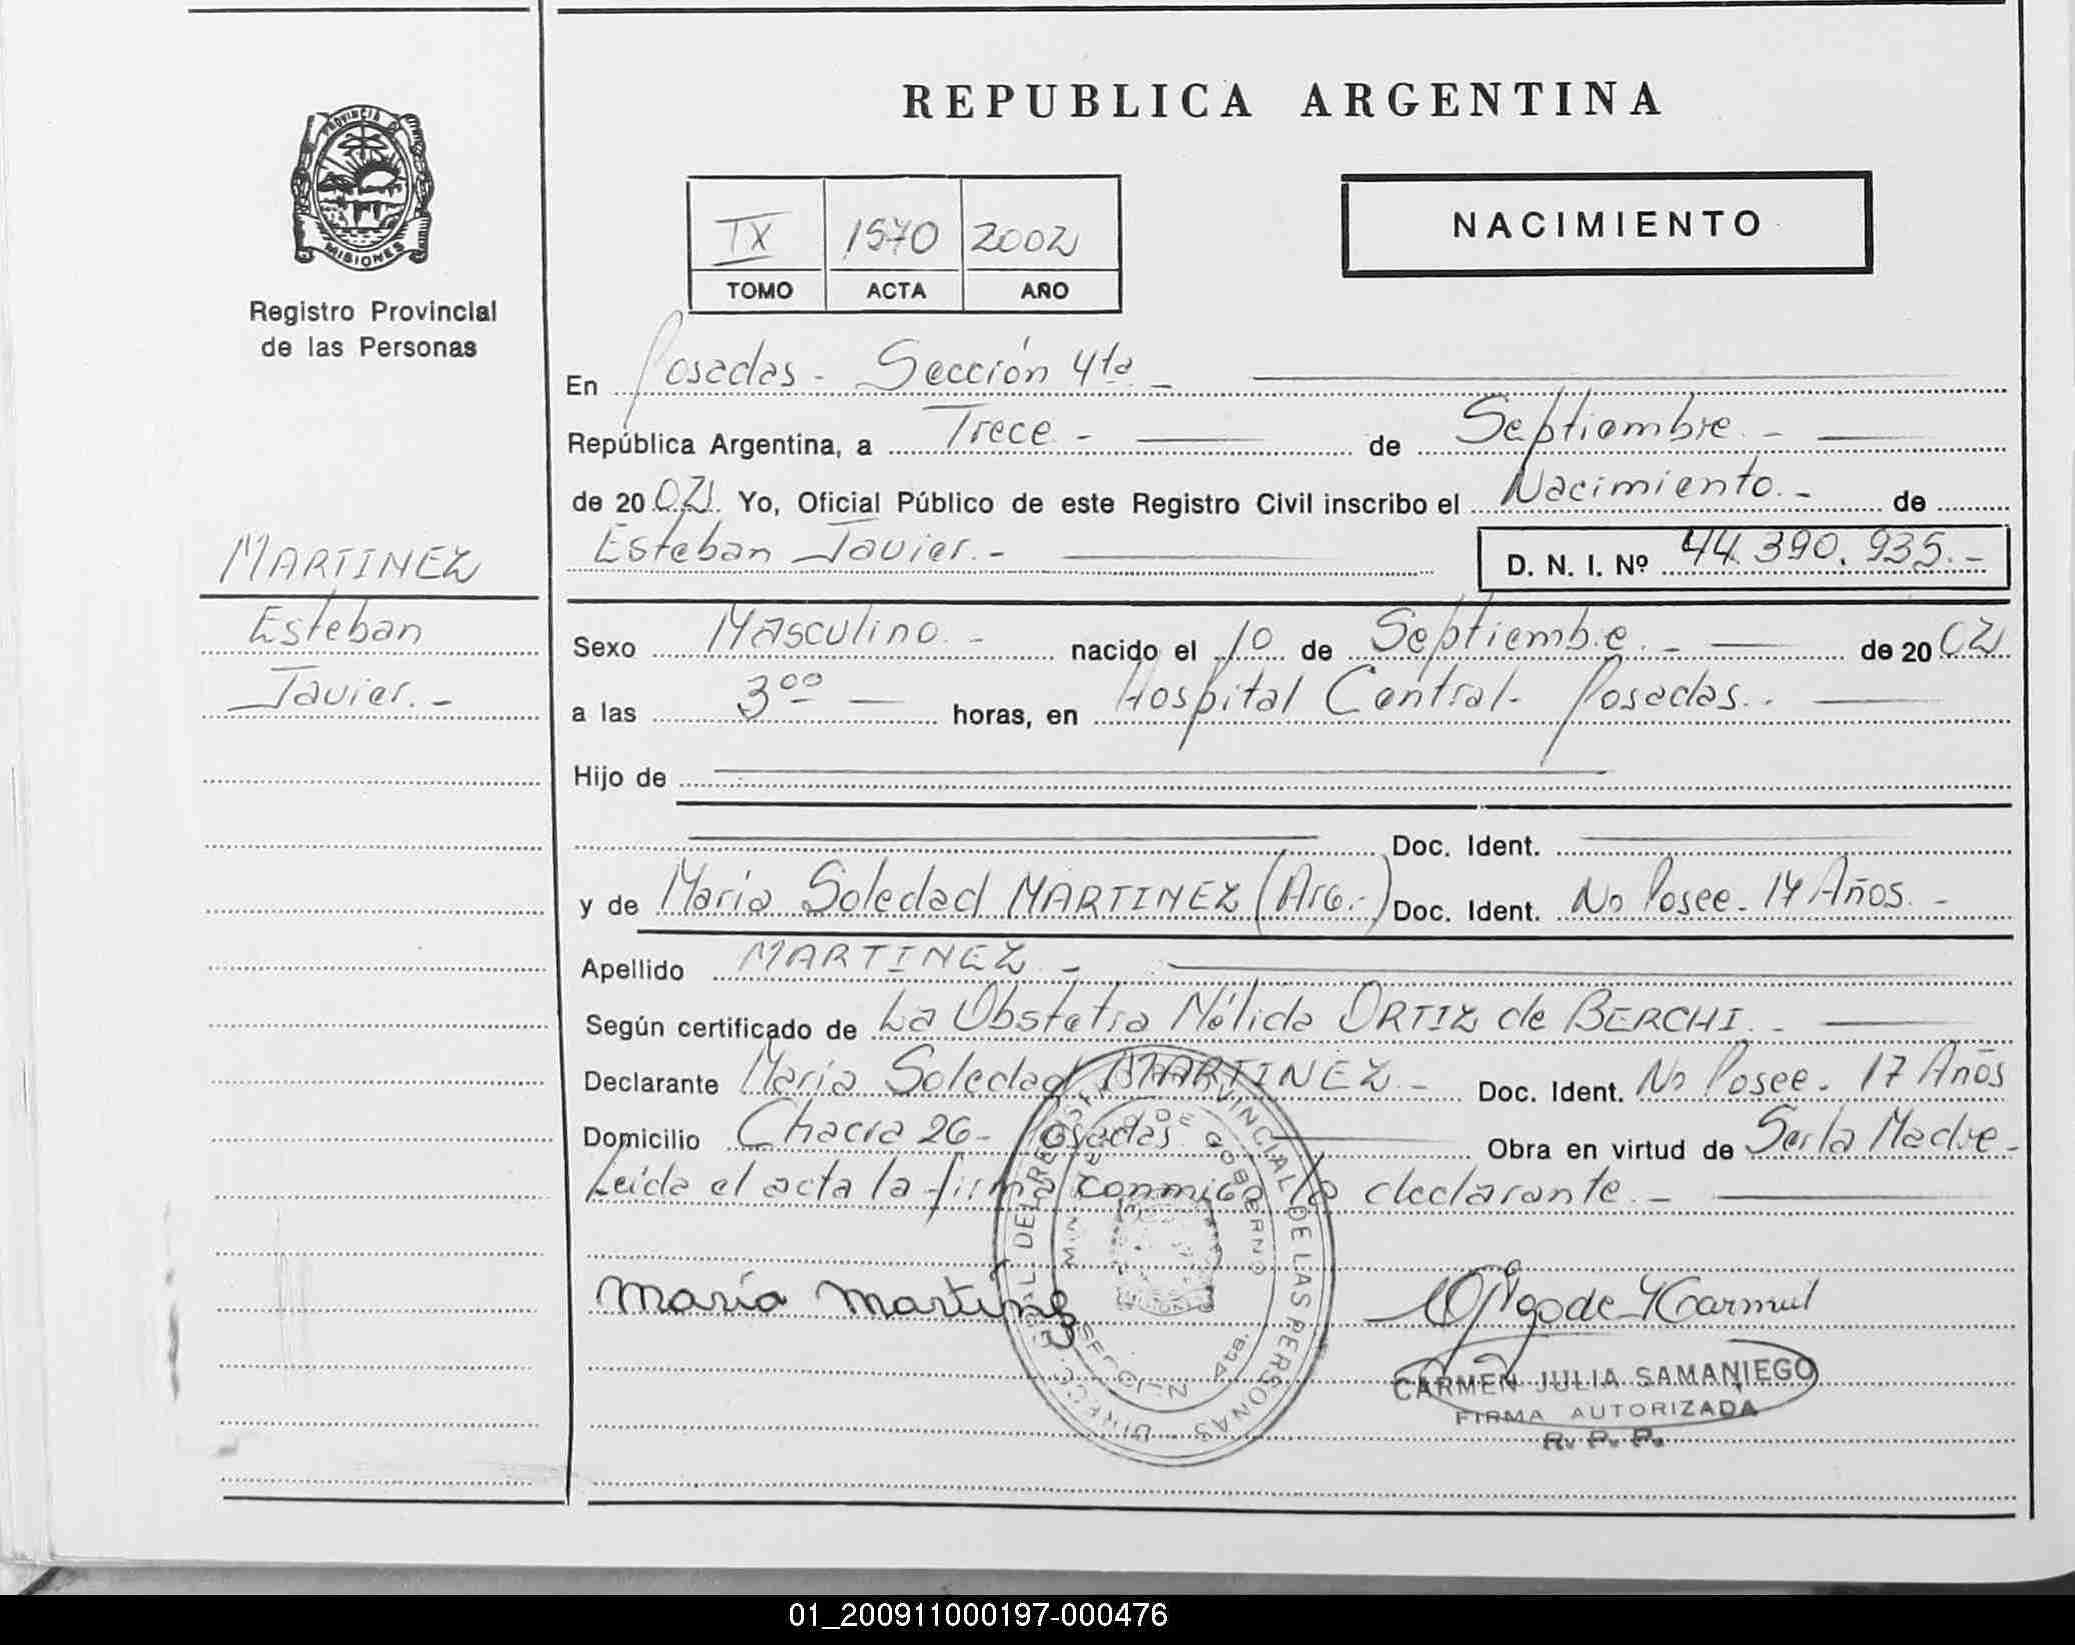 REPUBLICA ARGENTINA
PROVINCIA DE
MISIONES
Registro Provincial
de las Personas
NACIMIENTO
IX 1570 2002
TOMO ACTA AÑO
En Posadas - Sección 4ta. -
República Argentina, a Trece. - de Septiembre. -
de 20 02. Yo, Oficial Público de este Registro Civil inscribo el Nacimiento. - de
Esteban Javier. - D. N. I. Nº 44.390.935. -
MARTINEZ
Esteban
Javier. -
Sexo Masculino. - nacido el 10 de Septiembre. - de 20 02
a las 3 00 horas, en Hospital Central - Posadas. -
Hijo de
Doc. Ident.
y de María Soledad MARTINEZ (Arg.-) Doc. Ident. No Posee - 17 Años. -
Apellido MARTINEZ. -
Según certificado de La Obstetra Nélida ORTIZ de BERCHI. -
Declarante María Soledad MARTINEZ. - Doc. Ident. No Posee. 17 Años
Domicilio Chacra 26 - Posadas. Obra en virtud de Ser la Madre. -
Leída el acta la firma conmigo la declarante. -
María Martinez
DIRECC. GRAL DEL REGISTRO PROVINCIAL DE LAS PERSONAS
MINISTERIO DE GOBIERNO
SECCIÓN 4ta.
CARMEN JULIA SAMANIEGO
FIRMA AUTORIZADA
R. P. P.
01_200911000197-000476